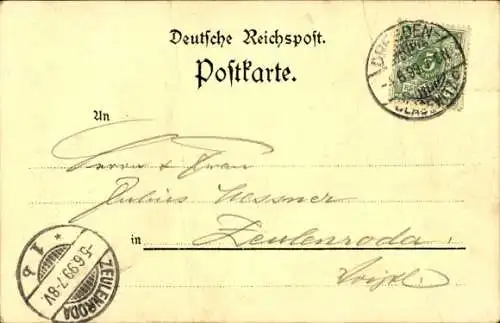 Deutsche Reichspost.
Postkarte.
DRESDEN
5
An
Herrn & Frau
Julius Messner
in Zeulenroda
Voigtl.
ZEULENRODA
5.6.99.7-8V.
* 1 b